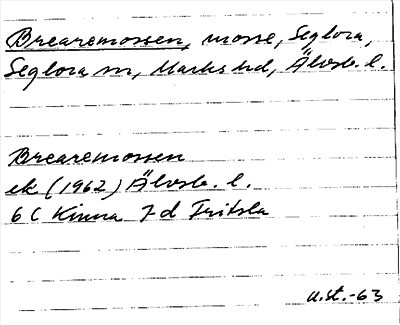 Brearemossen, mosse, Seglora,
Seglora sn, Marks hd, Älvsb. l.
Brearemossen
ek (1962) Älvsb. l.
6 C Kinna 7 d Fritsla
U.St.-63